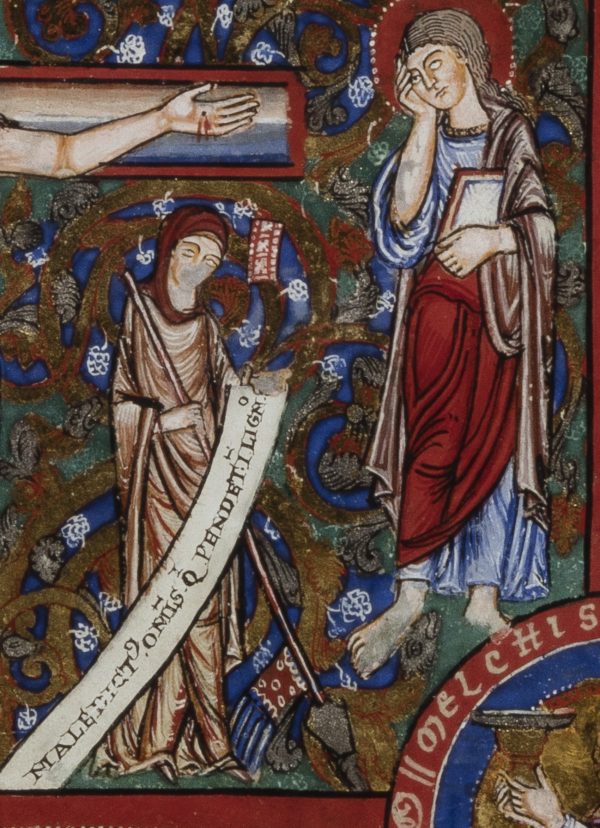 MALEDICTꝰ OMIS Q PENDET I LIGNO
MELCHIS